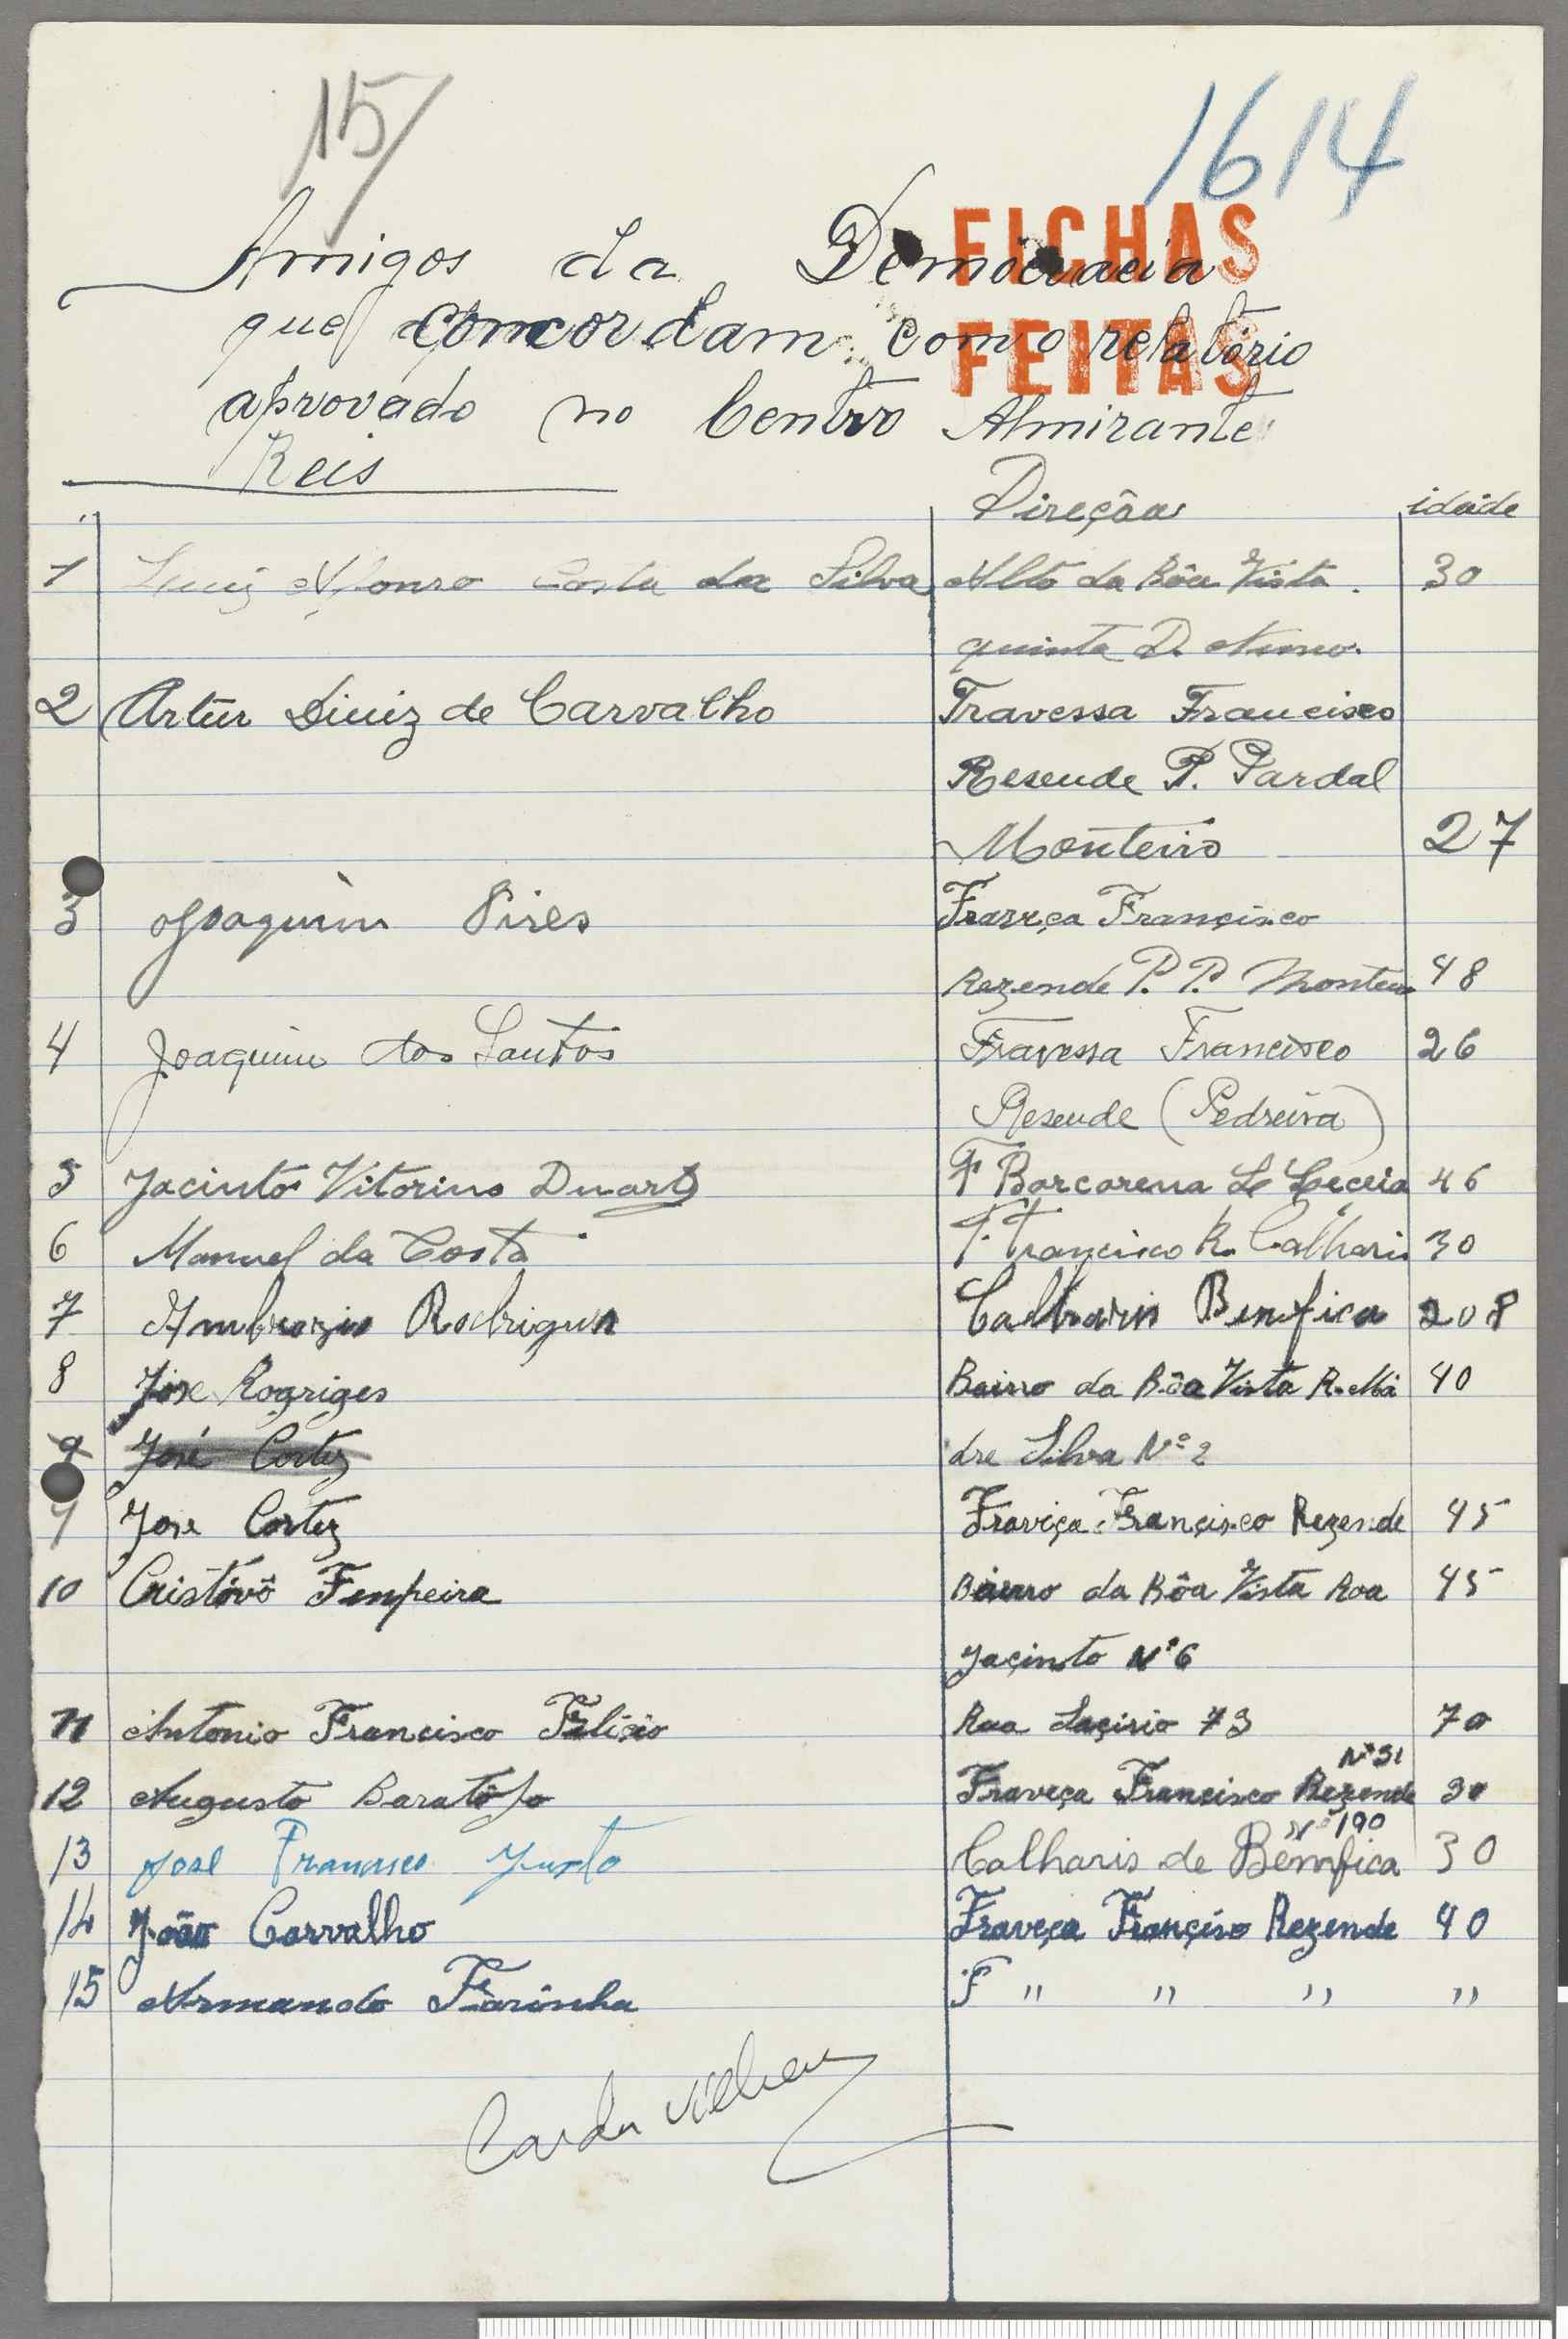 15/
1614
FICHAS
FEITAS
Amigos da Democracia
que concordam com o relatório
aprovado no Centro Almirante
Reis
Direçãa idade
1 Luiz Afonso Costa da Silva Alto da Bôa Vista. 30
quinta D. Nuno.
2 Artur Diniz de Carvalho Travessa Francisco
Resende P. Pardal
Monteiro 27
3 Joaquim Pires Fraveça Françisco
Rezende P. P. Monteiro 48
4 Joaquim dos Santos Travessa Francisco 26
Resende (Pedreira)
5 Jacinto Vitorino Duarte Barcarena Leceia 46
6 Manuel da Costa T. Francisco R. Calharis 30
7 Ambrozio Rodrigues Calharis Benfica 208
8 Jose Rogriges Bairro da Bôa Vista R. Má 40
9 José Cortez dre Silva Nº 2
9 Jose Cortez Fraviça Françisco Rezende 45
10 Cristóvõ Bairro da Bôa Vista Roa 45
Jaçinto Nº 6
11 Antonio Francisco Felicio Rua 73 70
Nº 31
12 Augusto Fraveça Francisco Rezende 30
Nº 190
13 José Francisco Justo Calharis de Bemfica 30
14 João Carvalho Fraveça Françiso Rezende 40
15 Armando Farinha F " " " "